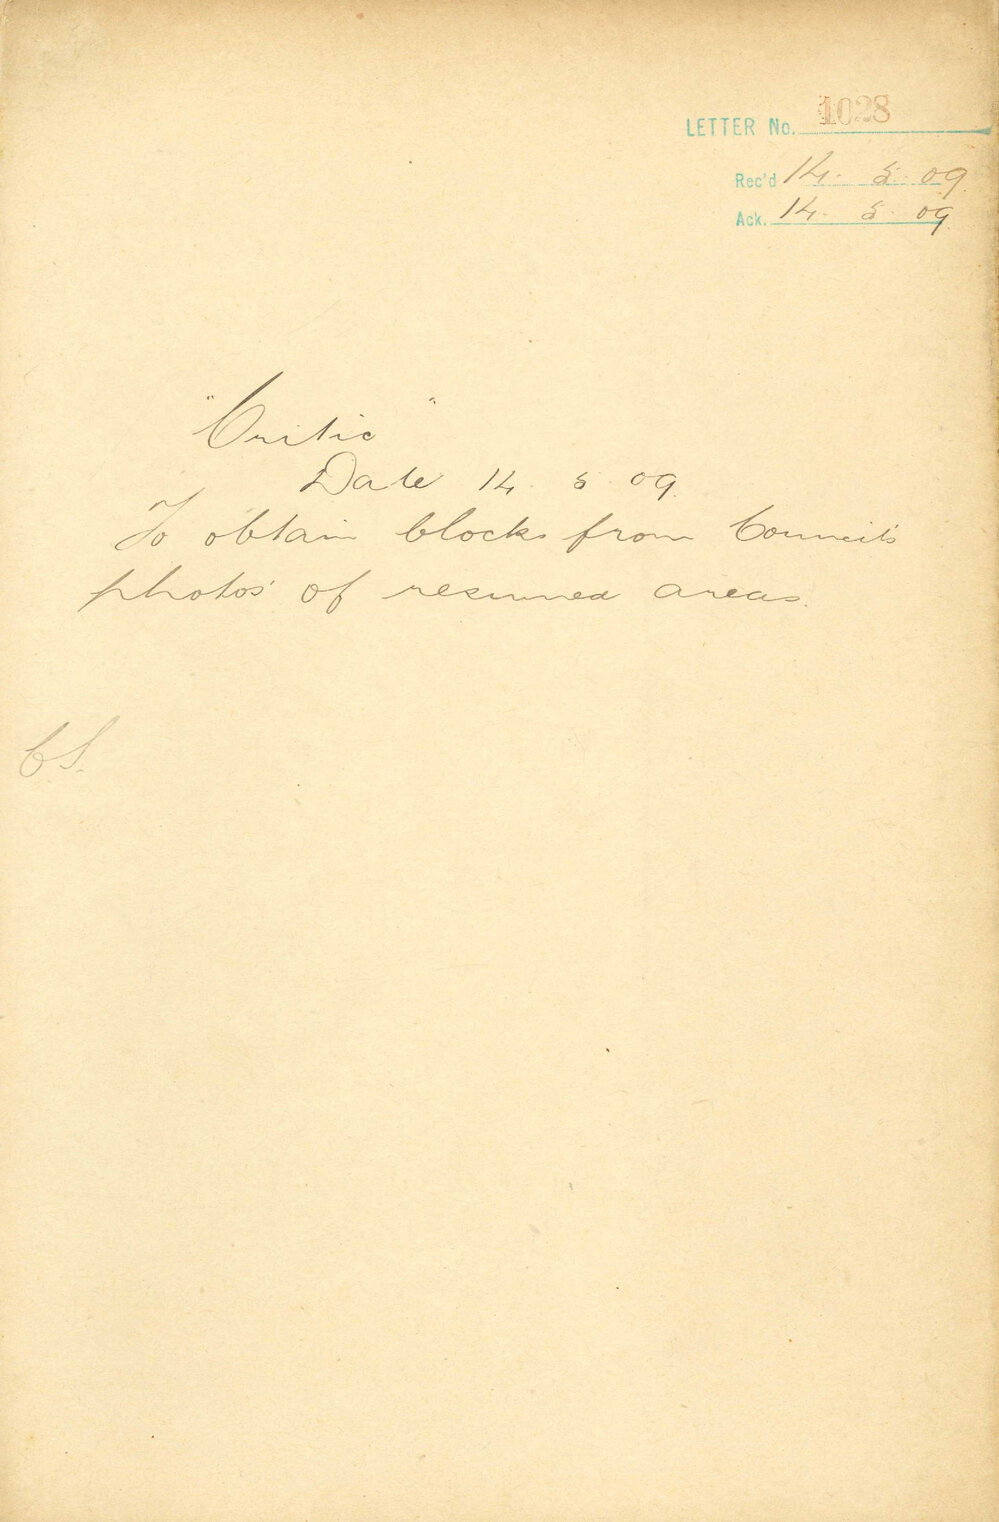 LETTER No. 1028
Rec'd 14. 5. 09.
Ack. 14. 5. 09.
"Critic"
Date 14. 5. 09.
To obtain blocks from Council's
photos' of resumed areas.
C.S.